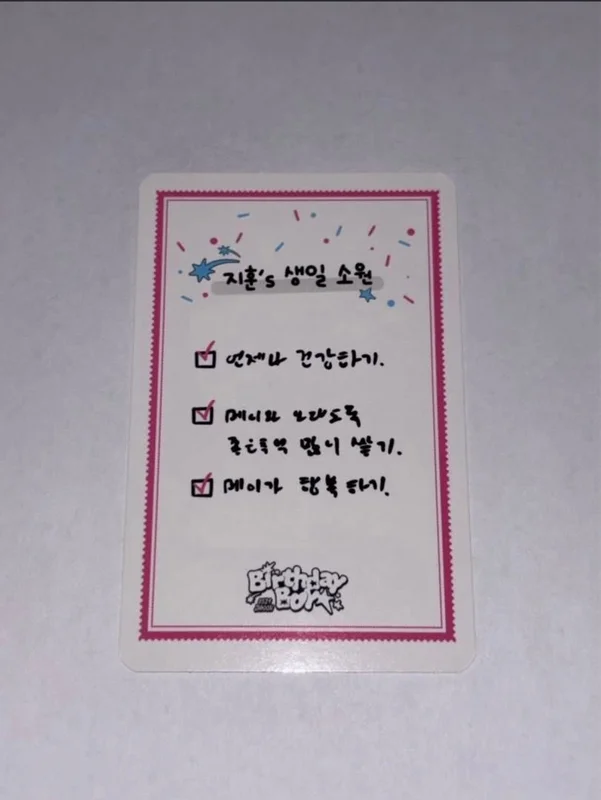 지훈's 생일 소원
언제나 건강하기.
메이와 오래도록
좋은추억 많이 쌓기.
메이가 행복하기.
Birthday
Boy